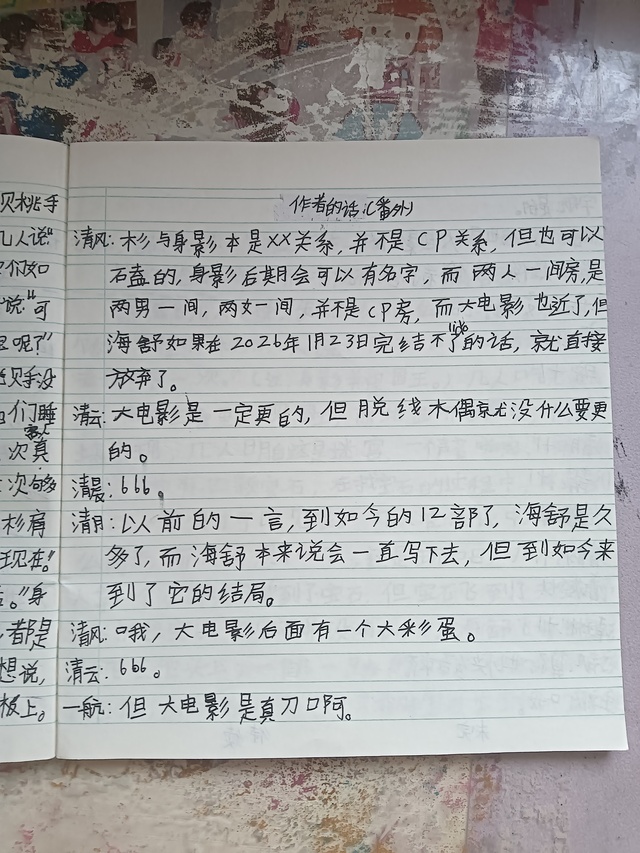 作者的话(番外)
清风:杉与身影本是XX关系,并不是CP关系,但也可以
石盍的,身影后期会可以有名字,而两人一间房,是
两男一间,两女一间,并不是CP房,而大电影也近了,但
海舒如果在2026年1月23日完结不了的话,就直接
放弃了。
清云:大电影是一定更的,但脱线木偶就没什么要更
的。
清晨:666。
清月:以前的一言,到如今的12部了,海舒是久
多了,而海舒本来说会一直写下去,但到如今来
到了它的结局。
清风:哦,大电影后面有一个大彩蛋。
清云:666。
一航:但大电影是真刀啊。
贝桃手
几人说"
们如
说:"可
呢?"
贝手没
们睡
次真
次够
杉有
现在。"
。"身
都是
想说,
板上。